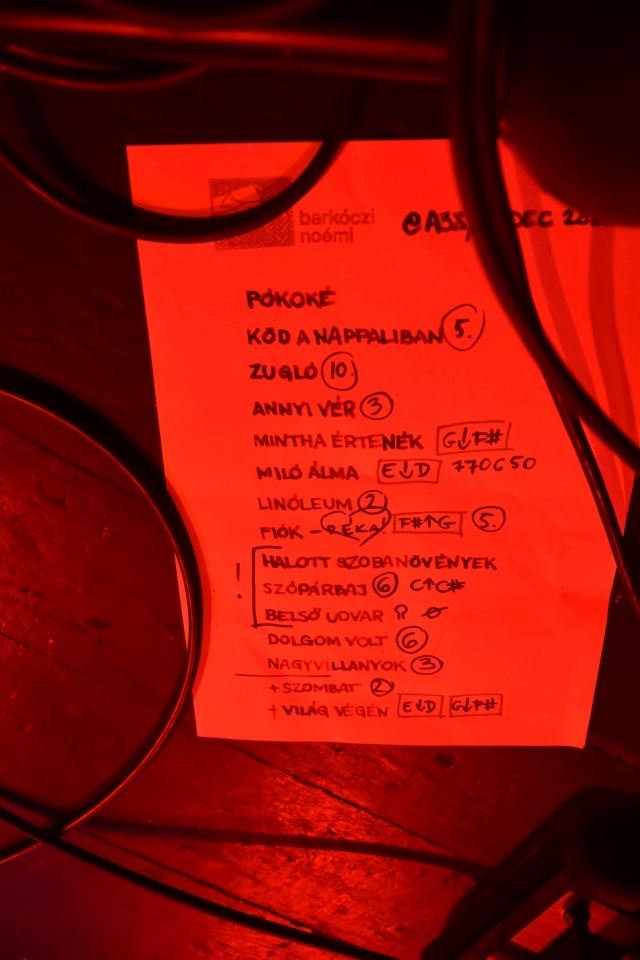 barkóczi
noémi
@A38, DEC
PÓKOKÉ
KÖD A NAPPALIBAN 5.
ZUGLÓ 10.
ANNYI VÉR 3
MINTHA ÉRTENÉK G↓F#
MILÓ ÁLMA E↓D 770650
LINÓLEUM 2
FIÓK - RÉKA! F#↑G 5.
! HALOTT SZOBANÖVÉNYEK
SZÓPÁRBAJ 6 C↑C#
BELSŐ UDVAR
DOLGOM VOLT 6
NAGYVILLANYOK 3
+ SZOMBAT 2
+ VILÁG VÉGÉN E↓D G↓F#